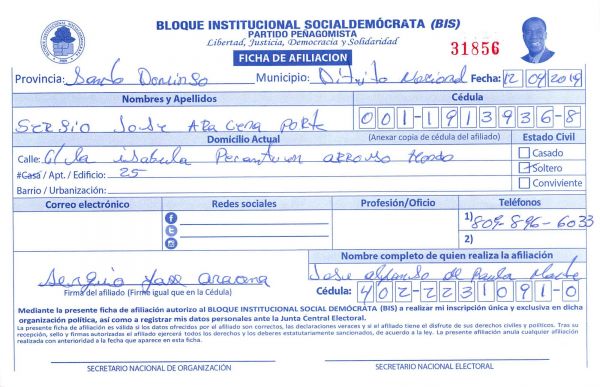 BLOQUE INSTITUCIONAL SOCIALDEMÓCRATA (BIS)
PARTIDO PEÑAGOMISTA
Libertad, Justicia, Democracia y Solidaridad
31856
FICHA DE AFILIACION
Provincia: Santo Domingo Municipio: Ditrito Nacional Fecha: 12/09/2019
Nombres y Apellidos Cédula
SERGIO JOSE ARACENA PORTE 001-1913936-8
Domicilio Actual (Anexar copia de cédula del afiliado) Estado Civil
Calle: C/ la isabela arroyo Hondo Casado
#Casa / Apt. / Edificio: 25 Soltero
Barrio / Urbanización: Conviviente
Correo electrónico Redes sociales Profesión/Oficio Teléfonos
1) 809-896-6033
2)
Nombre completo de quien realiza la afiliación
Sergio Jose aracena Jose alfonso de Paula
Firma del afiliado (Firme igual que en la Cédula) Cédula: 402-2231091-0
Mediante la presente ficha de afiliación autorizo al BLOQUE INSTITUCIONAL SOCIAL DEMÓCRATA (BIS) a realizar mi inscripción única y exclusiva en dicha
organización política, así como a registrar mis datos personales ante la Junta Central Electoral.
La presente ficha de afiliación es válida si los datos ofrecidos por el afiliado son correctos, las declaraciones veraces y si el afiliado tiene el disfrute de sus derechos civiles y políticos. Tras su
recepción, sello y firmas autorizadas el afiliado ejercerá todos los derechos y los deberes estatutariamente sancionados, de acuerdo a la ley. La presente afiliación anula cualquier afiliación
realizada con anterioridad a la fecha que aparece en esta ficha.
SECRETARIO NACIONAL DE ORGANIZACIÓN SECRETARIO NACIONAL ELECTORAL